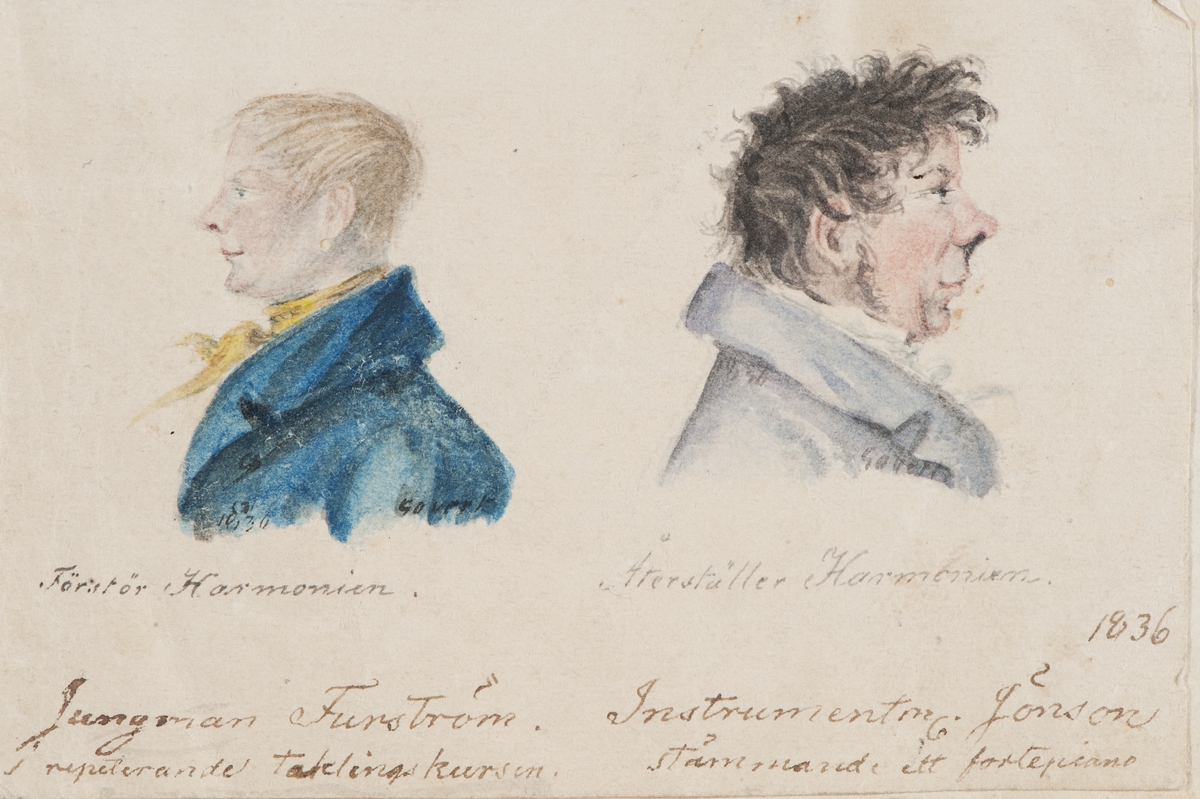 Govert
1830
Govert
Förstör Harmonien.
Återställer Harmonien.
1836
Jungman Furström.
repeterande taklingskursen.
Instrumentm. Jönson
stämmande ett fortepiano